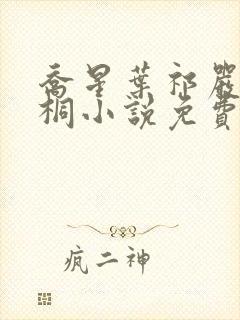 喬星葉祁嚴
桐小說免費
疯二神